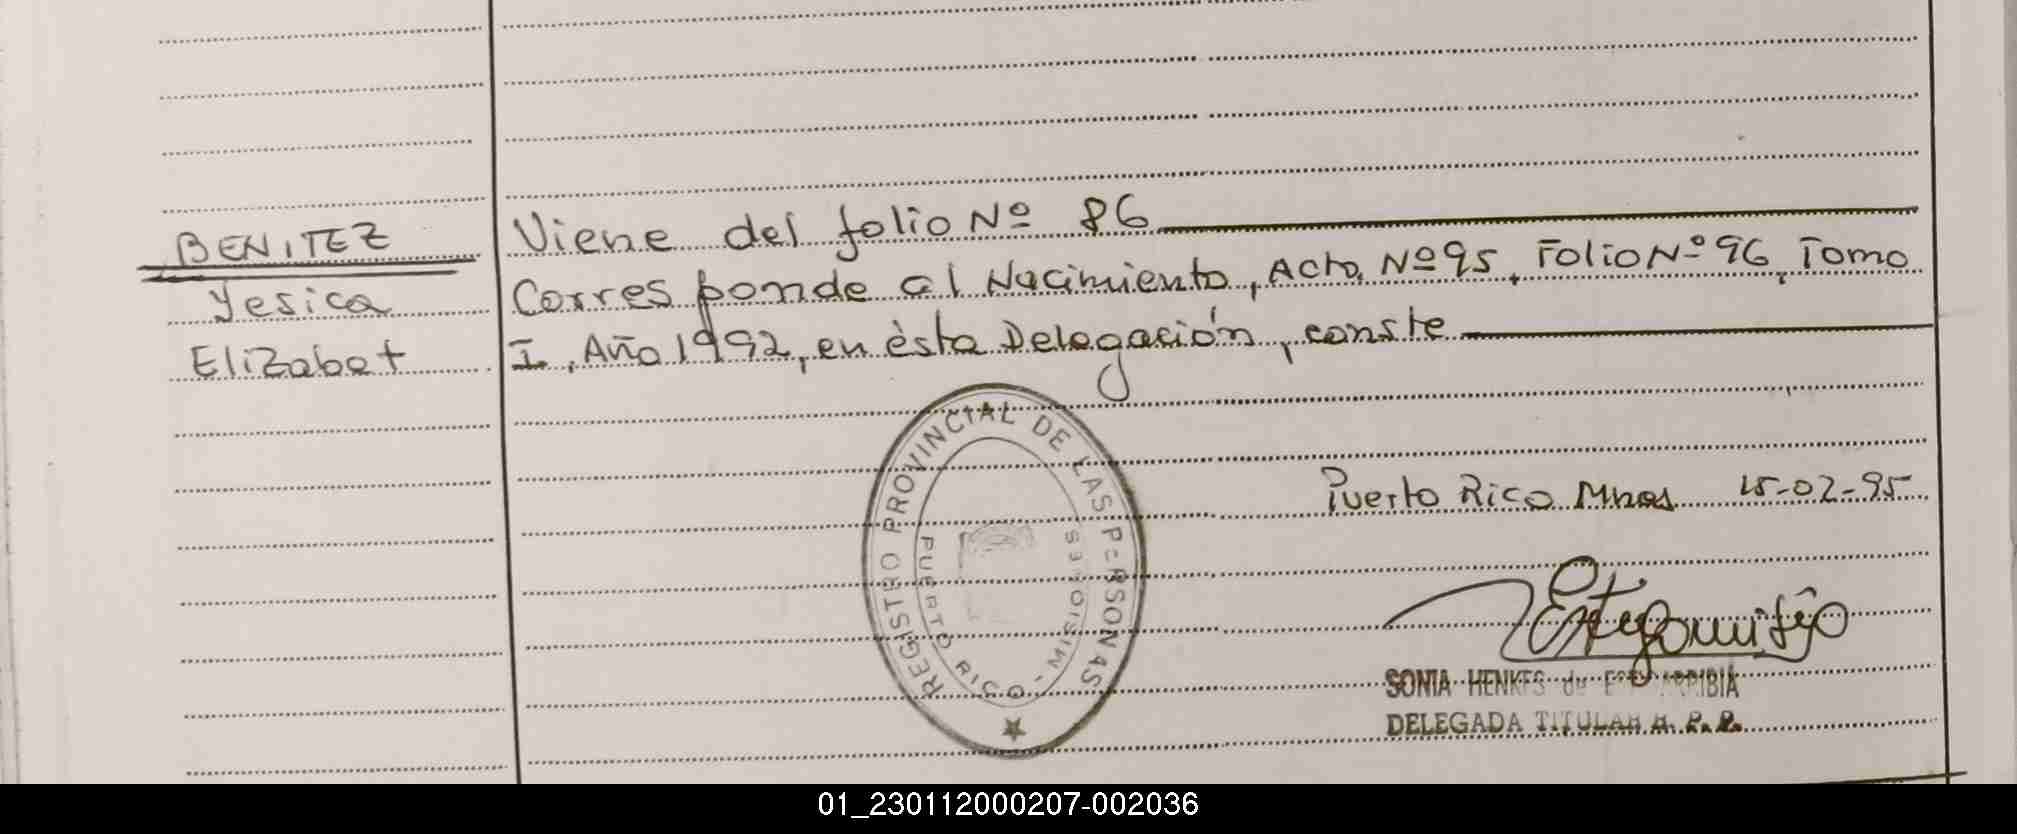 BENITEZ
Yesica
Elizabet
Viene del folio Nº 86
Corresponde al Nacimiento, Acta, Nº 95, Folio Nº 96, Tomo
I, Año 1992, en ésta Delegación, conste
REGISTRO PROVINCIAL DE LAS PERSONAS
PUERTO RICO - MISIONES
Puerto Rico Mnes 15-02-95
SONIA HENKES de
DELEGADA TITULAR R. P. P.
01_230112000207-002036